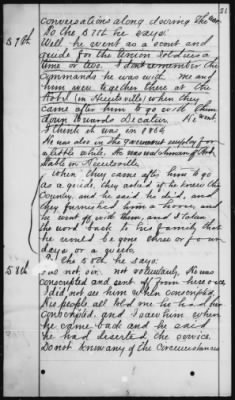 21
conversations along during the war
57th To the 57th he says:
Well, he went as a scout and
guide for the Union soldiers a
time or two. I dont remember the
commands he was with. me and
him were together there at the
Hotel (in Huntsville) when they
came after him to go with them
down towards Decatur. He went
I think it was, in 1864
He was also in the government employ for
a little while. He was watchman of
Stable in Huntsville
(when they came after him to go
as a guide, they asked if he knew the
County, and he said he did, and
they furnished him a horse, and
he went off with them, and I taken
the word back to his family that
he would be gone three or four
days or a week.
58th To the 58th he says:
was not sir. not voluntarily, He was
conscripted and sent off from here over
I did not see him when conscripted,
His people all told me he had been
conscripted. and I saw him when
he came back and he said
he had deserted the service.
Do not know any of the circumstances